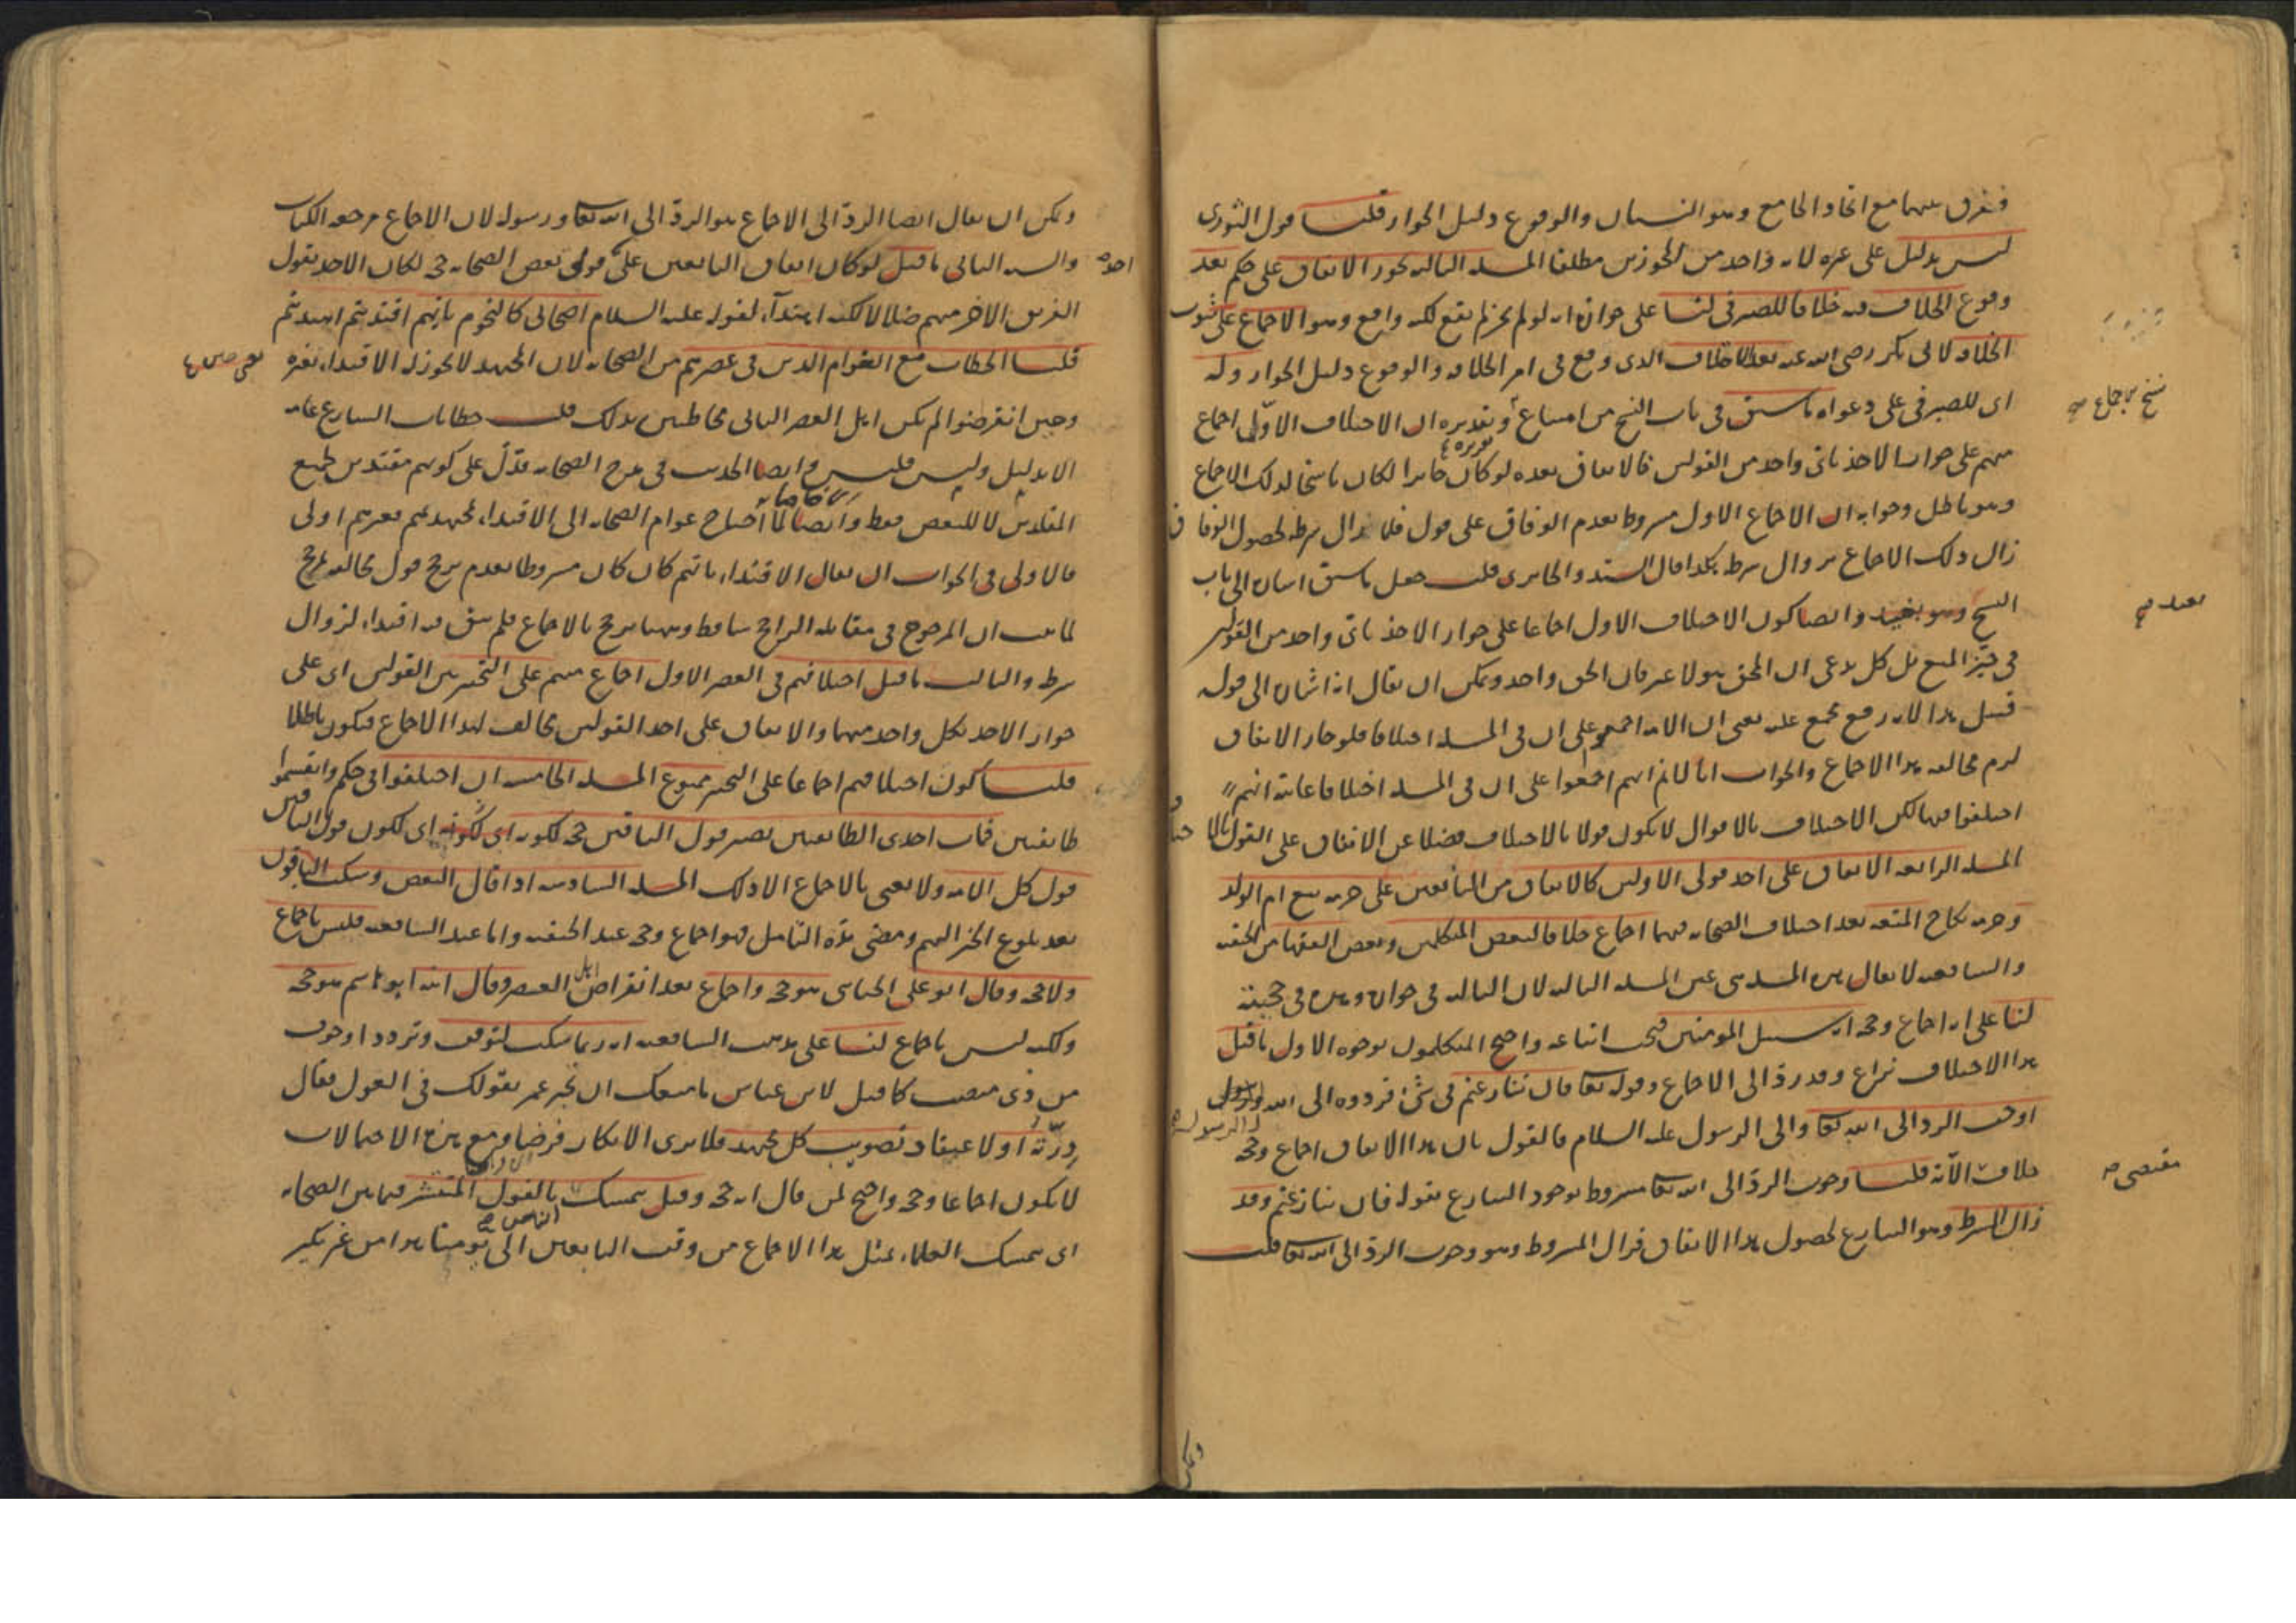 ففرق بينهما مع اتحاد الجامع وهو النسيان والوقوع دليل الجواز قلنا قول الثوري
ليس بدليل على غيره لانه واحد من المجوزين مطلقا المسئلة الثالثة يجوز الاتفاق على حكم بعد
وقوع الخلاف فيه خلافا للصيرفي لنا على جوازه انه لو لم يجز لم يقع لكنه واقع وهو الاجماع على ثبوت
الخلافة لابي بكر رضي الله عنه بعد الاختلاف الذي وقع في امر الخلافة والوقوع دليل الجواز وله
اي للصيرفي على دعواه ما سبق في باب النسخ من امتناع وتقديره ان الاختلاف الاول اجماع
نسخ الاجماع صح
تقريره
منهم على جواز الاخذ باي واحد من القولين فالاتفاق بعده لو كان جايزا لكان ناسخا لذلك الاجماع
وهو باطل وجوابه ان الاجماع الاول مشروط بعدم الوفاق على قول فلما زال شرطه لحصول الوفاق
زال ذلك الاجماع بزوال شرطه هكذا قال السيد والجابردي قلت جعل ما سبق اشارة الى باب
النسخ وهو بعيد وايضا كون الاختلاف الاول اجماعا على جواز الاخذ باي واحد من القولين
بعيد صح
في حيز المنع بل كل يدعي ان المحق هو لا غير فان الحق واحد ويمكن ان يقال انه اشارة الى قوله
قبيل هذا لانه رفع مجمع عليه يعني ان الامة اجمعوا على ان في المسئلة اختلافا فلو جاز الاتفاق
لزم مخالفة هذا الاجماع والجواب انا لا نم انهم اجمعوا على ان في المسئلة اختلافا غايته انهم
اختلفوا فيها لكن الاختلاف بالاقوال لا يكون قولا بالاختلاف فضلا عن الاتفاق على القول بالا
المسئلة الرابعة الاتفاق على احد قولي الاولين كالاتفاق من التابعين على حرمة بيع ام الولد
وحرمة نكاح المتعة بعد اختلاف الصحابة فيهما اجماع خلافا لبعض المتكلمين وبعض الفقها من الحنفية
والشافعية لا يقال هذه المسئلة هي عين المسئلة الثالثة لان الثالثة في جوازه وهذه في حجيته
لنا على انه اجماع وحجة انه سبيل المؤمنين فيجب اتباعه واحتج المتكلمون بوجوه الاول ما قيل
هذا الاختلاف نزاع وقد رد الى الاجماع وقوله تعا فان تنازعتم في شئ فردوه الى الله والرسول
اوجب الرد الى الله تعا والى الرسول عليه السلام فالقول بان هذا الاتفاق اجماع وحجة
خلاف الاية قلنا وجوب الرد الى الله تعا مشروط بوجود التنازع بقوله فان تنازعتم وقد
مقتضى صح
زال الشرط وهو التنازع لحصول هذا الاتفاق فزال المشروط وهو وجوب الرد الى الله تعا قلت
ويمكن
ويمكن ان يقال ايضا الرد الى الاجماع هو الرد الى الله تعا ورسوله لان الاجماع مرجعه الكتاب
والسنة الثاني ما قيل لو كان اتفاق التابعين على قول بعض الصحابة حجة لكان الاخذ بقول
الفريق الاخر منهم ضلالا لكنه اهتداء لقوله عليه السلام اصحابي كالنجوم بايهم اقتديتم اهتديتم
قلنا الخطاب مع العوام الذين في عصرهم من الصحابة لان المجتهد لا يجوز له الاقتداء بغيره
وحين انقرضوا لم يكن اهل العصر الثاني مخاطبين بذلك قلت خطابات الشارع عامة
الا بدليل وليس فليس وايضا الحديث في مدح الصحابة فدل على كونهم مقتدين لجميع
المقلدين لا للبعض فقط وايضا لما احتاج عوام الصحابة الى الاقتداء لمجتهديهم فغيرهم اولى
فالاولى في الجواب ان يقال الاقتداء بايهم كان كان مشروطا بعدم ترجح قول مخالفه لمرجح
لما ثبت ان المرجوح في مقابلة الراجح ساقط وههنا ترجح بالاجماع فلم يبق فيه اقتداء لزوال
شرطه والثالث ما قيل اختلافهم في العصر الاول اجماع منهم على التخيير بين القولين اي على
جواز الاخذ بكل واحد منهما والاتفاق على احد القولين مخالف لهذا الاجماع فيكون باطلا
قلنا كون اختلافهم اجماعا على التخيير ممنوع المسئلة الخامسة ان اختلفوا في حكم وانقسموا
طايفتين فمات احدى الطايفتين يصير قول الباقين حجة لكونه اي لكونه اي لكون قول الباقين
قول كل الامة ولا يعنى بالاجماع الا ذلك المسئلة السادسة اذا قال البعض وسكت الباقون
بعد بلوغ الخبر اليهم ومضى مدة التأمل فهو اجماع وحجة عند الحنفية واما عند الشافعية فليس باجماع
ولا حجة وقال ابو علي الجبائي هو حجة واجماع بعد انقراض اهل العصر وقال ابنه ابو هاشم هو حجة
ولكنه ليس باجماع لنا على مذهب الشافعية انه ربما سكت لتوقف وتردد او خوف
من ذي منصب كما قيل لابن عباس ما منعك ان تخبر عمر بقولك في العول فقال
درته او لاعتقاد تصويب كل مجتهد فلا يرى الانكار فرضا ومع هذه الاحتمالات
لا يكون اجماعا وحجة واحتج لمن قال انه حجة وقيل يتمسك بالقول المنتشر فيما بين الصحابة
اي يتمسك العلماء بمثل هذا الاجماع من وقت التابعين الى يومنا هذا من غير نكير